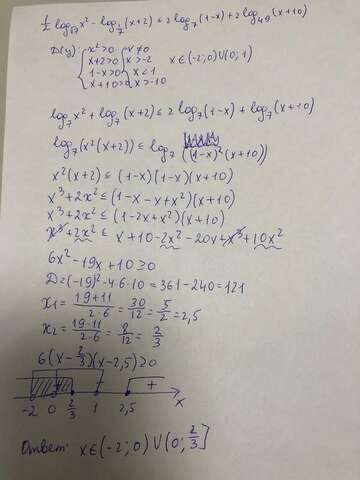 1/2 log_√7 x² - log_1/7 (x+2) ≤ 2 log_7 (1-x) + 2 log_49 (x+10)
D(y): { x²>0 { x≠0
x+2>0 x>-2 x∈(-2;0)∪(0;1)
1-x>0 x<1
x+10>0 x>-10
log_7 x² + log_7 (x+2) ≤ 2 log_7 (1-x) + log_7 (x+10)
log_7 (x²(x+2)) ≤ log_7 ((1-x)²(x+10))
x²(x+2) ≤ (1-x)(1-x)(x+10)
x³+2x² ≤ (1-x-x+x²)(x+10)
x³+2x² ≤ (1-2x+x²)(x+10)
x³+2x² ≤ x+10-2x²-20x+x³+10x²
6x²-19x+10≥0
D=(-19)²-4·6·10=361-240=121
x₁= (19+11)/(2·6) = 30/12 = 5/2 = 2,5
x₂= (19-11)/(2·6) = 8/12 = 2/3
6(x-2/3)(x-2,5)≥0
+ - +
-2 0 2/3 1 2,5 x
Ответ: x∈(-2;0)∪(0;2/3]